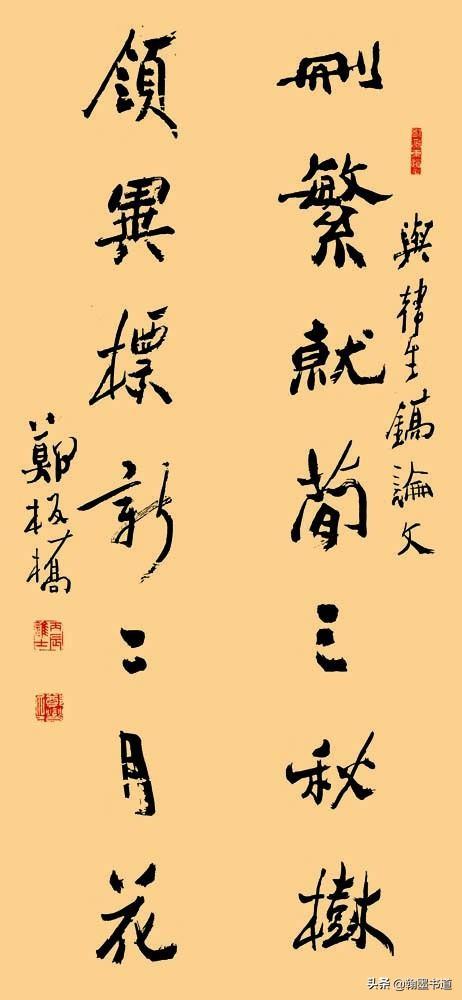 與韓生鎬論文
刪繁就簡三秋樹
領異標新二月花
鄭板橋
丙辰進士
头条 @翰墨书道